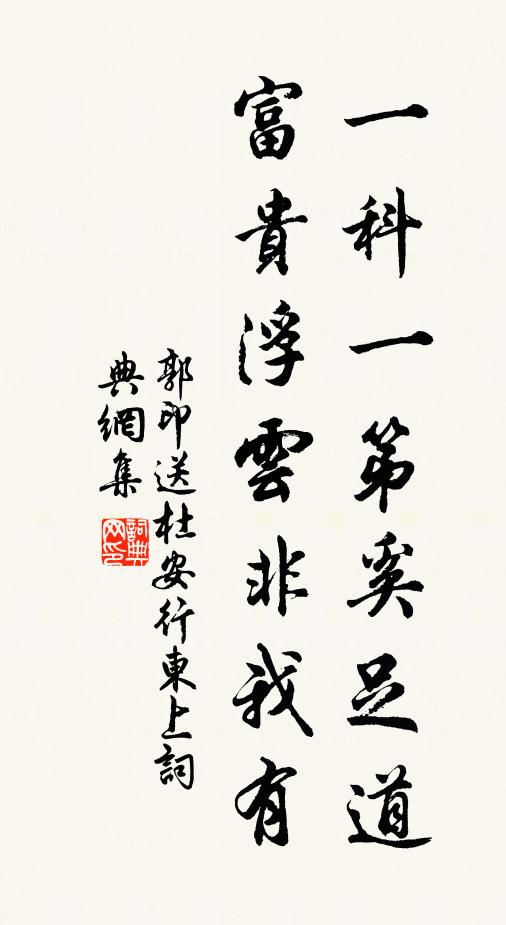 一科一第奚足道
富貴浮雲非我有
郭印送杜安行東上詞
典網集
詞典網印